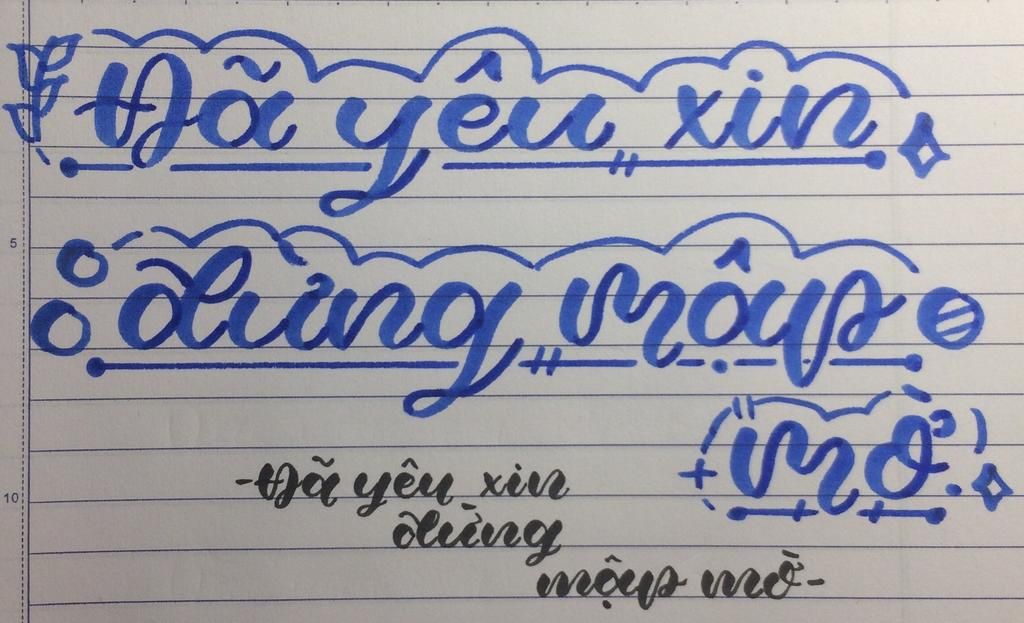 Đã yêu xin
5
đừng mập
mờ
-Đã yêu xin
10
đừng
mập mờ-